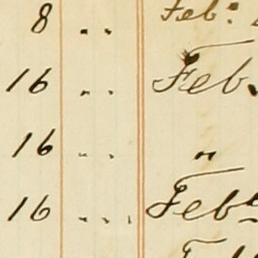 8 " Feb:
16 " Feb.
16 " "
16 " Feb